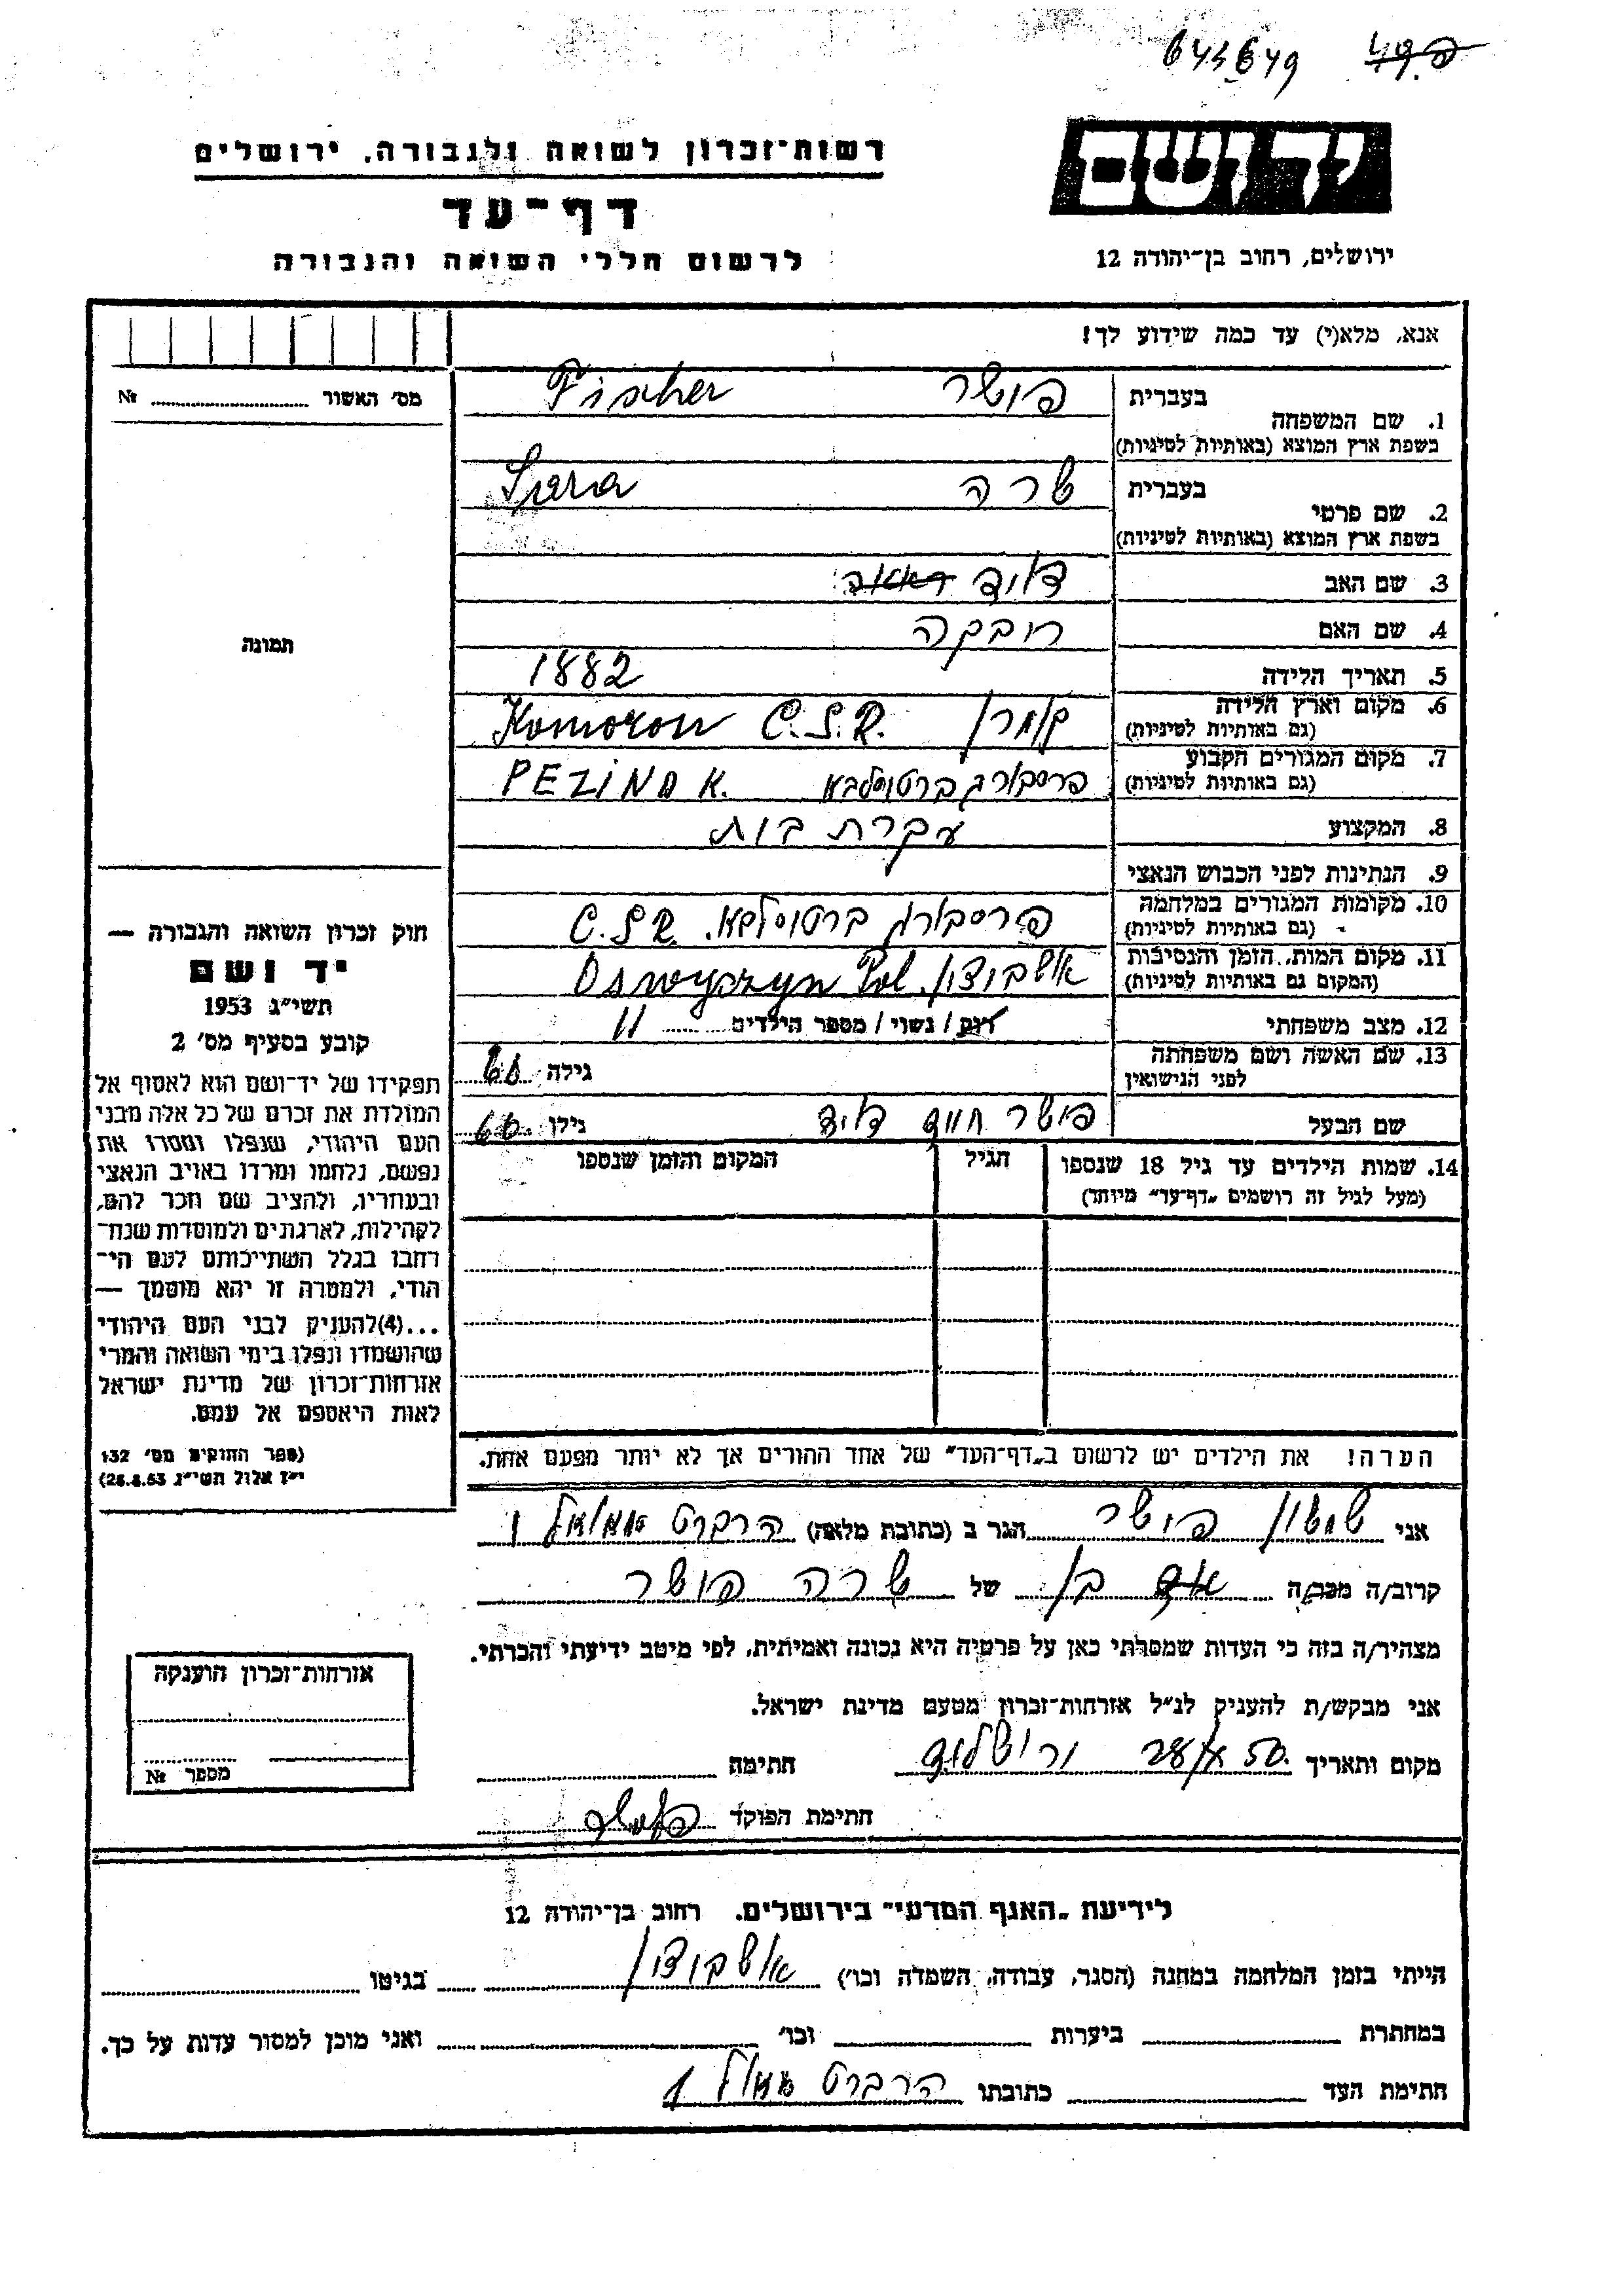 643649
יד ושם
רשות־זכרון לשואה ולגבורה, ירושלים
דף־עד
לרשום חללי השואה והגבורה
ירושלים, רחוב בן־יהודה 12
אנא, מלא(י) עד כמה שידוע לך!
מס' האשור № ........
תמונה
1. שם המשפחה
בעברית פישר Fischer
בשפת ארץ המוצא (באותיות לטיניות)
2. שם פרטי
בעברית שרה Sara
בשפת ארץ המוצא (באותיות לטיניות)
3. שם האב דויד
4. שם האם רובקה
5. תאריך הלידה 1882
6. מקום וארץ הלידה (גם באותיות לטיניות) קומרן Komoron C.S.R.
7. מקום המגורים הקבוע (גם באותיות לטיניות) פרסבורג ברטוסלבא PEZINOK.
8. המקצוע עקרת בות
9. הנתינות לפני הכבוש הנאצי
10. מקומות המגורים במלחמה (גם באותיות לטיניות) פרסבורג ברטוסלבא. C.S.R.
11. מקום המות, הזמן והנסיבות (המקום גם באותיות לטיניות) אושבוצון Oswyczyn Pol.
12. מצב משפחתי רוק / נשוי / מספר הילדים 11
13. שם האשה ושם משפחתה לפני הנישואין גילה 60
שם הבעל פישר חיים דויד גילו 60
14. שמות הילדים עד גיל 18 שנספו
(מעל לגיל זה רושמים „דף־עד" מיוחד)
הגיל
המקום והזמן שנספו
חוק זכרון השואה והגבורה —
יד ושם
תשי״ג 1953
קובע בסעיף מס' 2
תפקידו של יד־ושם הוא לאסוף אל
המולדת את זכרם של כל אלה מבני
העם היהודי, שנפלו ומסרו את
נפשם, נלחמו ומרדו באויב הנאצי
ובעוזריו, ולהציב שם וזכר להם,
לקהילות, לארגונים ולמוסדות שנח־
רבו בגלל השתייכותם לעם הי־
הודי, ולמטרה זו יהא מוסמך —
...(4) להעניק לבני העם היהודי
שהושמדו ונפלו בימי השואה והמרי
אזרחות־זכרון של מדינת ישראל
לאות היאספם אל עמם.
(ספר החוקים מס' 132
י״ז אלול תשי״ג 28.8.53)
הערה! את הילדים יש לרשום ב„דף־העד" של אחד ההורים אך לא יותר מפעם אחת.
אני שמעון פישר הגר ב (כתובת מלאה) הרברט סמואל 1
קרוב/ה מכר/ה בן של שרה פישר
מצהיר/ה בזה כי העדות שמסרתי כאן על פרטיה היא נכונה ואמיתית, לפי מיטב ידיעתי והכרתי.
אני מבקש/ת להעניק לנ״ל אזרחות־זכרון מטעם מדינת ישראל.
מקום ותאריך ורושלום חתימה
חתימת הפוקד
אזרחות־זכרון הוענקה
מספר №
לידיעת „האגף המדעי" בירושלים. רחוב בן־יהודה 12
הייתי בזמן המלחמה במחנה (הסגר, עבודה, השמדה וכו') אושבוצון בגיטו
במחתרת ביערות וכו' ואני מוכן למסור עדות על כך.
חתימת העד כתובתו הרברט סמואל 1